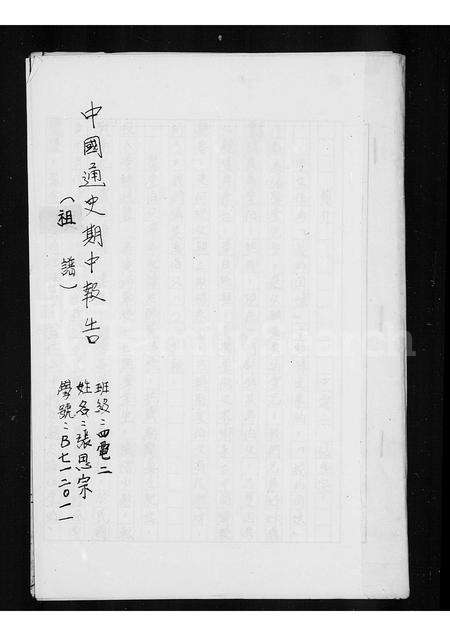 中國通史期中報告
（祖譜）
班級：四電二
姓名：張恩宗
學號：B七一二０一一